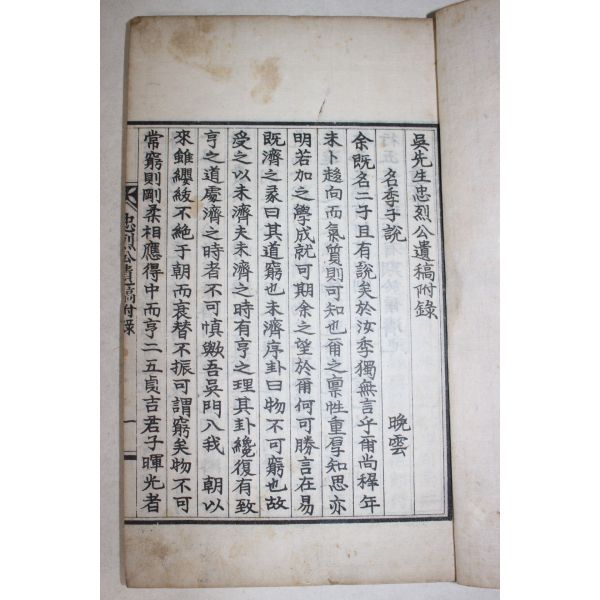 吳先生忠烈公遺稿附錄
名季子說 晩雲
余旣名二子且有說矣於汝季獨無言乎爾尙稺年
未卜趍向而氣質則可知也爾之禀性重厚知思亦
明若加之學成就可期余之望於爾何可勝言在易
旣濟之彖曰其道窮也未濟序卦曰物不可窮也故
受之以未濟夫未濟之時有亨之理其卦纔復有致
亨之道處濟之時者不可愼歟吾吳門入我 朝以
來雖纓紱不絶于朝而衰替不振可謂窮矣物不可
常窮則剛柔相應得中而亨二五貞吉君子暉光者
忠烈公遺稿附錄 一